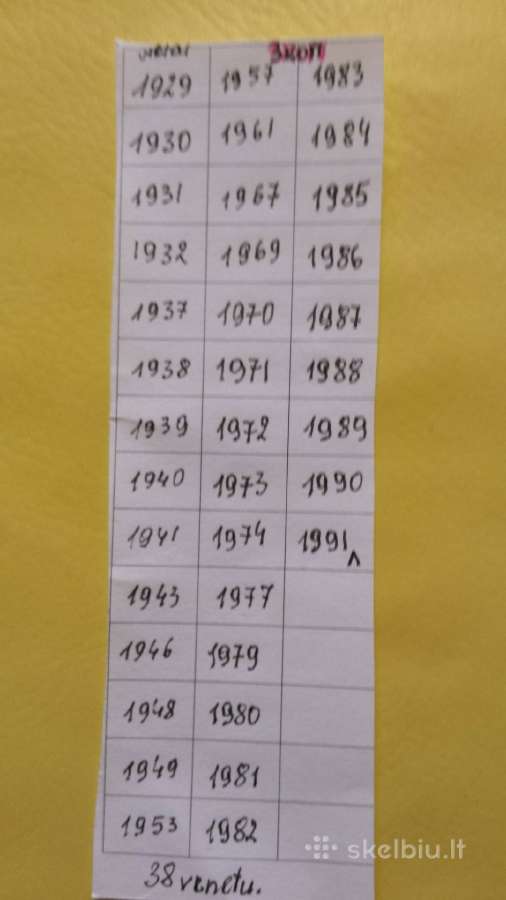 3коп
1929 1957 1983
1930 1961 1984
1931 1967 1985
1932 1969 1986
1937 1970 1987
1938 1971 1988
1939 1972 1989
1940 1973 1990
1941 1974 1991 Л
1943 1977
1946 1979
1948 1980
1949 1981
1953 1982
38 vienetu.
skelbiu.lt